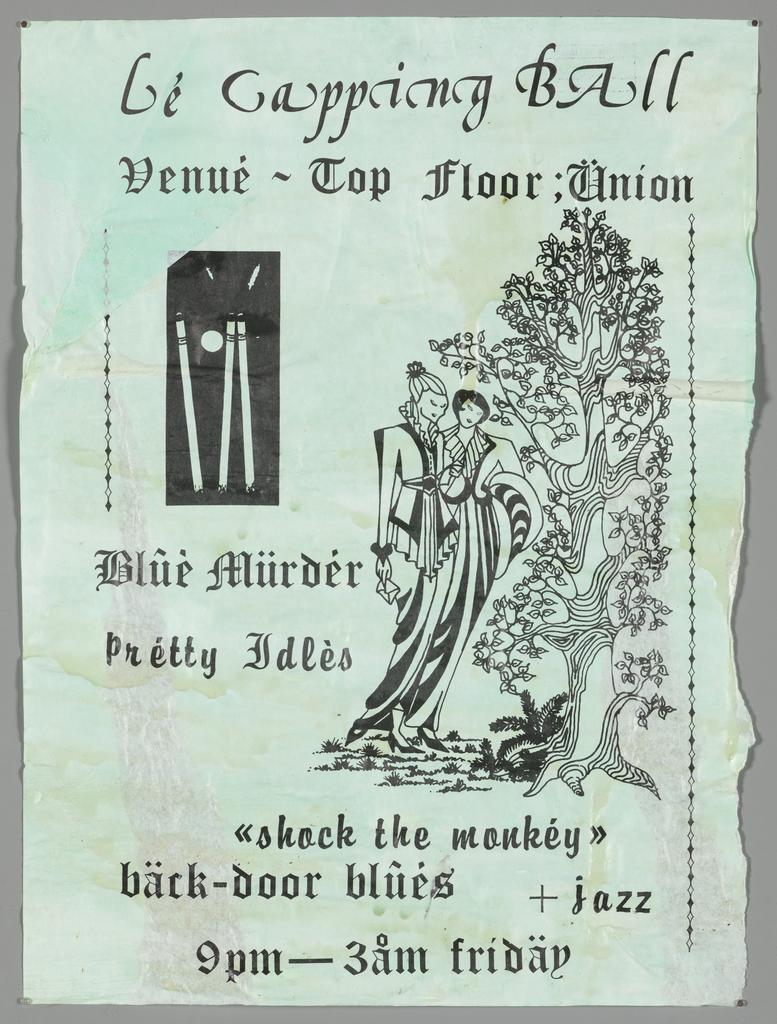 Lé Capping BAll
Venué ~ Top Floor; Ünion
Blûè Mürdér
Prétty Idlès
«shock the monkéy»
bäck-door blûés + jazz
9pm — 3åm fridäy